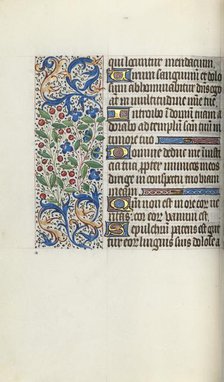 qui locuntur mendacium
Virum sanguinum et dolo
sum abhominabitur dominus ego
autem in multitudine misericordie tue
Introibo in domum tuam a
dorabo ad templum sanctum tuum in
timore tuo
Domine deduc me in iusti
cia tua propter inimicos meos
dirige in conspectu tuo viam
meam
Quoniam non est in ore eorum ve
ritas cor eorum vanum est
Sepulchrum patens est gut
tur eorum linguis suis dolose a